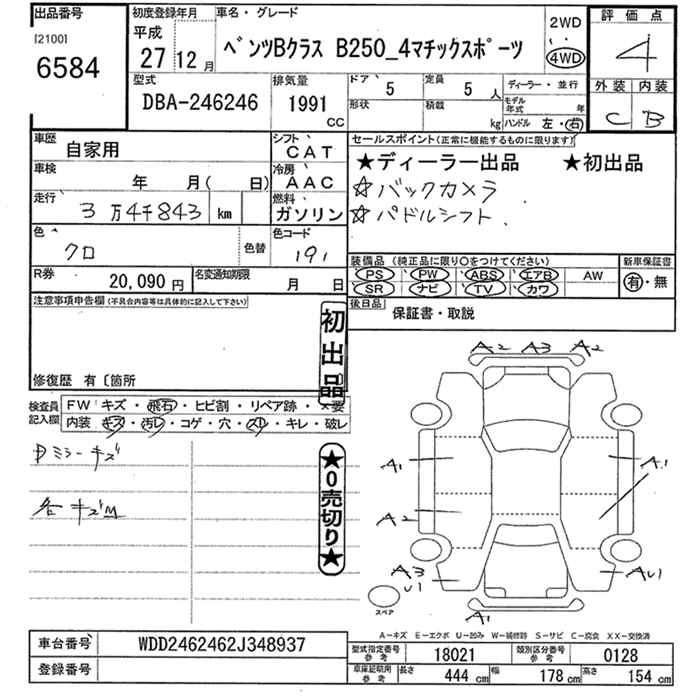 出品番号
[2100]
6584
初度登録年月
平成
27 12月
車名・グレード
ベンツBクラス B250_4マチックスポーツ
2WD
・・
4WD
評価点
4
外装 内装
C B
型式
DBA-246246
排気量
1991
CC
ドア
5
定員
5人
形状
積載
kg
ディーラー・並行
モデル年式 年
ハンドル 左・右
車歴
自家用
シフト
CAT
車検
年 月( 日)
冷房
AAC
走行
3万4千843 km
燃料
ガソリン
色
クロ
色替
色コード
191
R券
20,090円
名変通知期限
月 日
セールスポイント(正常に機能するものに限ります)
★ディーラー出品 ★初出品
☆バックカメラ
☆パドルシフト
装備品(純正品に限り○をつけてください)
PS PW ABS エアB AW
SR ナビ TV カワ
新車保証書
有・無
後日品
保証書・取説
注意事項申告欄(不具合内容等は具体的に記入して下さい)
初出品
修復歴 有〔箇所
検査員記入欄
FW キズ・飛石・ヒビ割・リペア跡・×要
内装 キズ・汚レ・コゲ・穴・スレ・キレ・破レ
Pミラーキズ
各キズM
★0売切り★
A2 A3 A2
A1
A1
A2
A3
U1
AU1
A1
スペア
A－キズ E－エクボ U－凹み W－補修跡 S－サビ C－腐食 XX－交換済
車台番号
WDD2462462J348937
登録番号
型式指定番号参考
18021
類別区分番号参考
0128
車庫証明用参考
長さ 444cm
幅 178cm
高さ 154cm